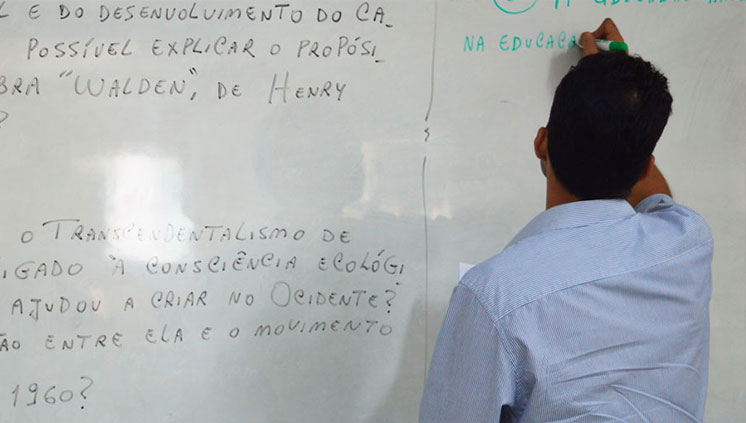 L E DO DESENVOLVIMENTO DO CA_
POSSÍVEL EXPLICAR O PROPÓSI_
BRA "WALDEN", DE HENRY
?
O TRANSCENDENTALISMO DE
IGADO À CONSCIÊNCIA ECOLÓGI
AJUDOU A CRIAR NO OCIDENTE?
ÃO ENTRE ELA E O MOVIMENTO
1960?
A
NA EDUCAÇA